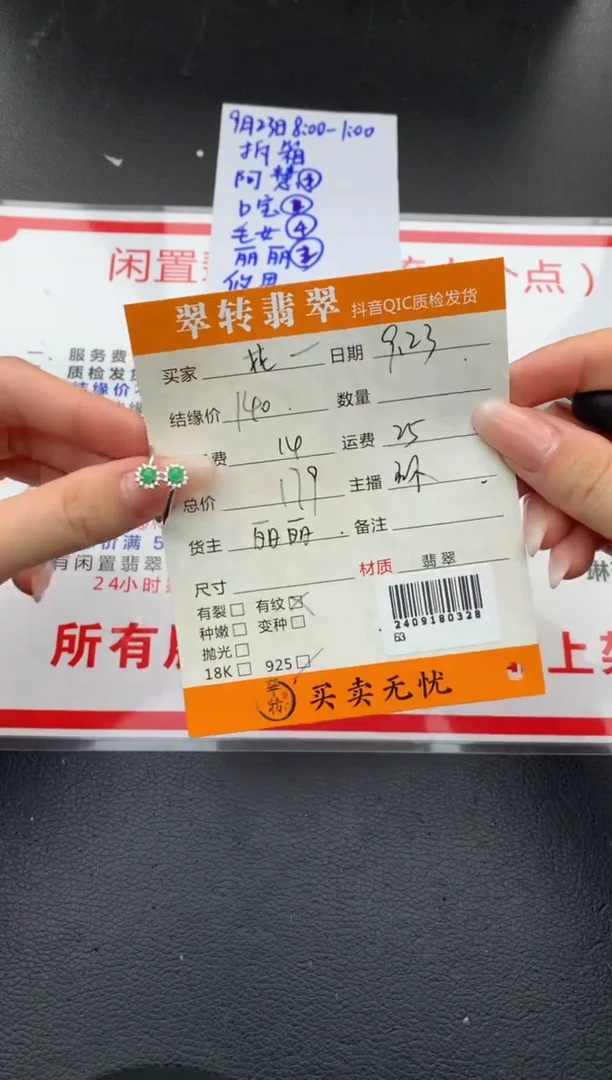 9月23日 8:00-1:00
拆箱
阿慧④
口宝
毛女④
丽丽
闲置
个点）
一、服务费
质检发货
结缘价
翠转翡翠 抖音QIC质检发货
买家 日期 9.23
结缘价 140 数量
费 14 运费 25
总价 179 主播
货主 丽丽 备注
尺寸 材质 翡翠
有裂□ 有纹☑
种嫩□ 变种□
抛光□
18K□ 925☑
2409180328
63
翠转
买卖无忧
价满 5
有闲置翡翠
24小时
琳
所有
上架